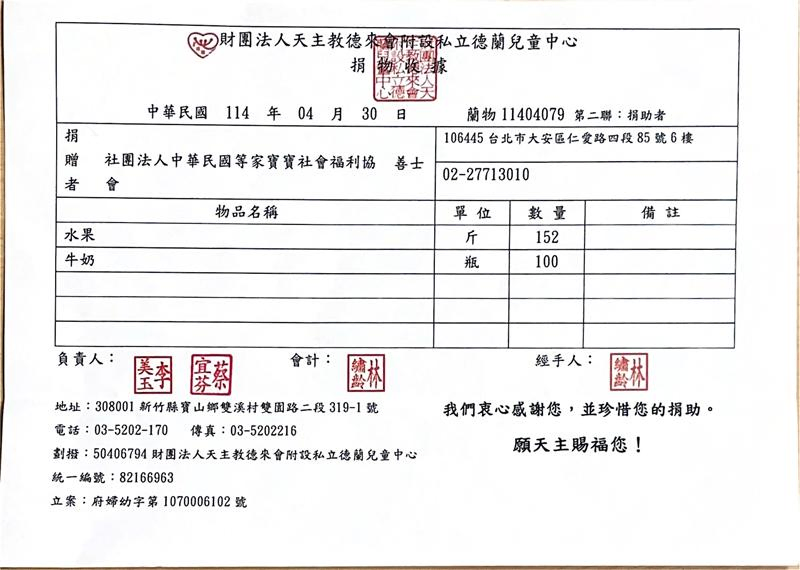 財團法人天主教德來會附設私立德蘭兒童中心
捐物收據
中華民國 114 年 04 月 30 日 蘭物 11404079 第二聯：捐助者
捐贈者 社團法人中華民國等家寶寶社會福利協會 善士
106445 台北市大安區仁愛路四段 85 號 6 樓
02-27713010
物品名稱 單位 數量 備註
水果 斤 152
牛奶 瓶 100
負責人： 李美玉 蔡宜芬 會計： 林繡齡 經手人： 林繡齡
地址：308001 新竹縣寶山鄉雙溪村雙園路二段 319-1 號
電話：03-5202-170 傳真：03-5202216
劃撥：50406794 財團法人天主教德來會附設私立德蘭兒童中心
統一編號：82166963
立案：府婦幼字第 1070006102 號
我們衷心感謝您，並珍惜您的捐助。
願天主賜福您！